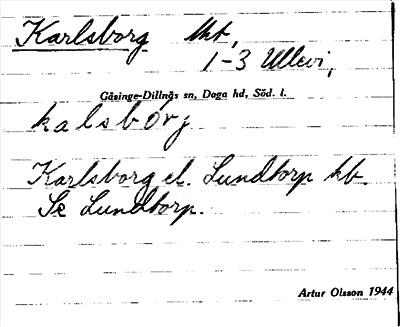 Karlsborg Uht,
1-3 Ullevi,
Gåsinge-Dillnäs sn, Daga hd, Söd. l.
kalsborj
Karlsborg el. Lundtorp hb.
Se Lundtorp.
Artur Olsson 1944